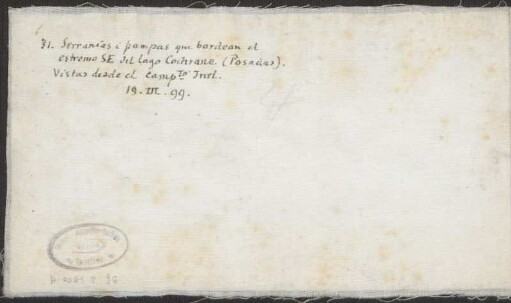 31. Serranías i pampas que bordean el
estremo SE del lago Cochrane. (Posadas).
Vistas desde el Camp.to
19. III. 99.